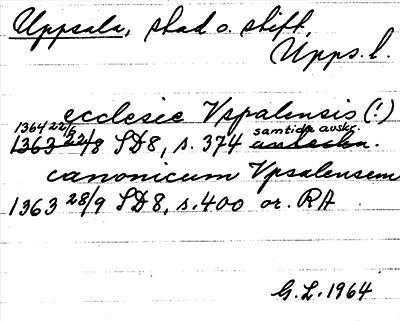 Uppsala, stad o. stift,
Upps. l.
ecclesie Vspalensis (!)
1364 22/6 samtida avskr.
1363 22/8 SD8, s. 374 avskr.
canonicum Vpsalensem
1363 28/9 SD8, s. 400 or. RA
G. L. 1964